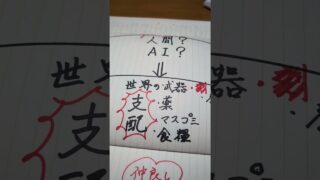 人間？
AI？
世界の武器・
支配
・薬
・マスコミ
・食糧
仲良し